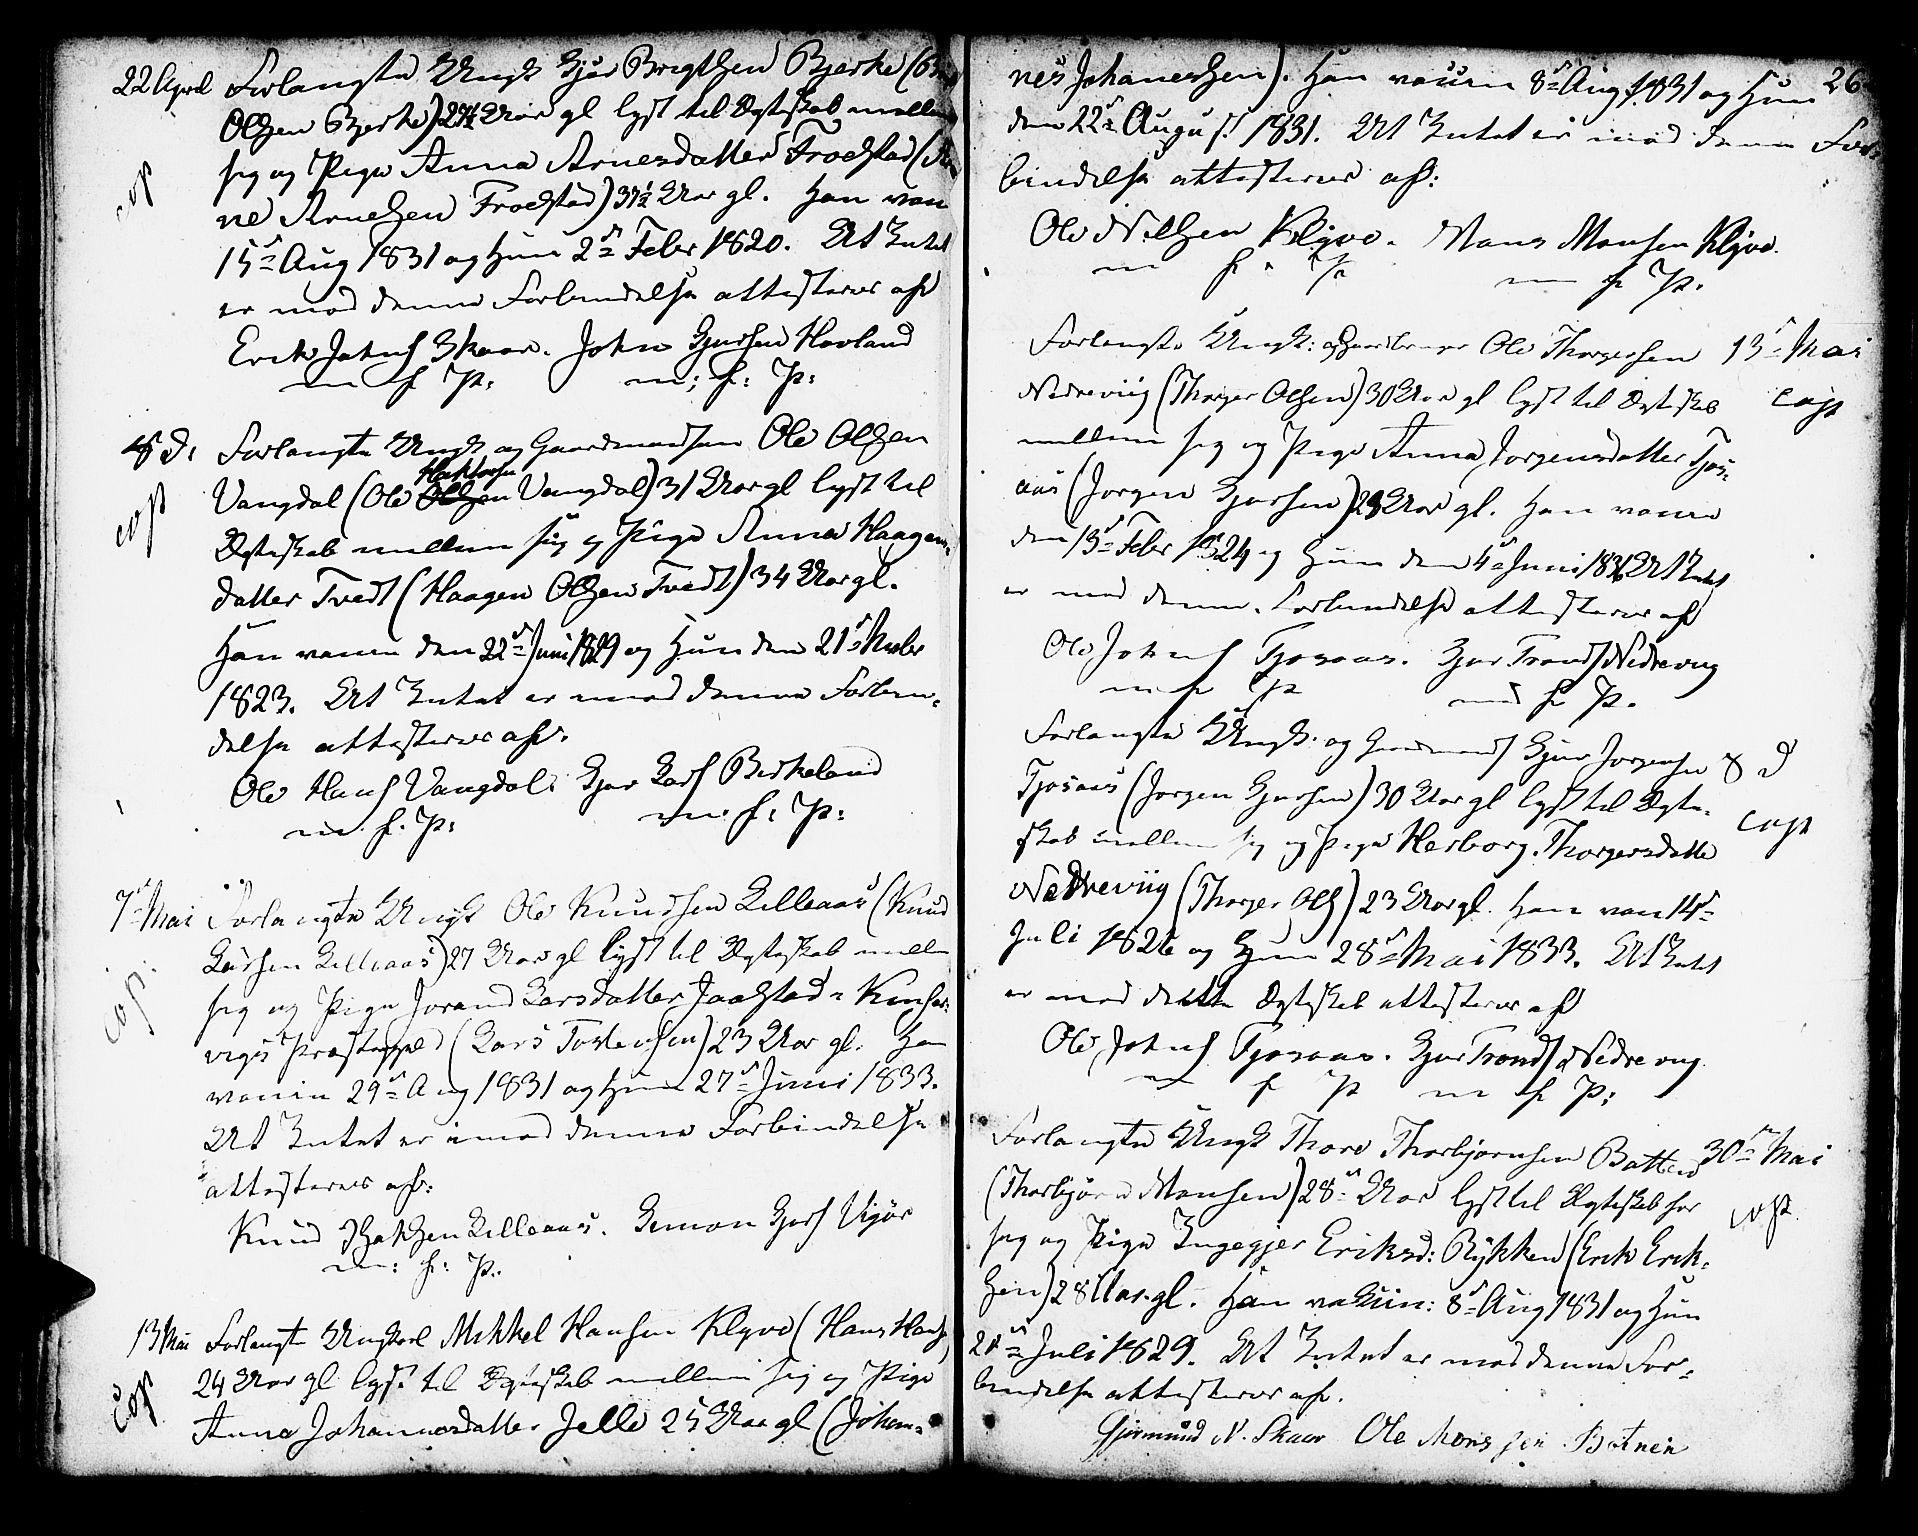 22 April Forlangte Ungk Gjør Brigtsen Bjerke (B
Olsen Bjerke) 24½ Aar gl lyst til Ægteskab mellem
cop
sig og Pige Anna Arnesdatter Trodstad (Ar
ne Arnesen Trodstad) 37½ Aar gl. Han vac
15de Aug 1831 og Hun 2den Febr 1820. At Intet
er mod denne Forbindelse attesteres af
Erik Johns Skaar. John Gjersen Hovland
m f P: m; f: P:
s D: Forlangte Ungk og Gaardmandsøn Ole Olsen
Haktorsen
Vangdal (Ole Olsen Vangdal) 31 Aar gl lyst til
cop
Ægteskab mellem sig og Pige Anna Haagens
datter Tvedt (Haagen Olsen Tvedt) 34 Aar gl.
Han vaccin den 22de Juni 1829 og Hun den 21de
1823. At Intet er mod denne Forbin-
delse attesteres af.
Ole Hans Vangdal. Gjør Lars Birkeland
m. f. P: m. f: P:
7de Mai Forlangte Ungk Ole Knudsen Lilleaas (Knud
Larsen Lilleaas) 27 Aar gl lyst til Ægteskab mellem
sig og Pige Jorand Larsdatter Jaastad i Kinser-
cop.
vigs Præstegjeld (Lars Torstensen) 23 Aar gl. Han
vaccin 29de Aug 1831 og Hun 27de Juni 1833.
At Intet er imod denne Forbindelse
attesteres af:
Knud Lilleaas. Simon Gjers Vigør
m: f: P.
13 Mai Forlangte Ungkarl Mikkel Hansen Klyve (Hans Hans)
24 Aar gl lyst til Ægteskab mellem sig og Pige
cop
Anna Johannesdatter Jelle 25 Aar gl (Johan-
26
nes Johanessen). Han vaccin 8de Aug 1831 og Hun
den 22de August 1831. At Intet er mod denne For-
bindelse attesteres af:
Ole Nilsen Klyve. Hans Monsen Klyve.
m f P m f P.
Forlangte Ungk: og Gaardbruger Ole Thorgersen 13de Mai
Nedreviig (Thorger Olsen) 30 Aar gl lyst til Ægteskab cop
mellem sig og Pige Anna Jorgensdatter Tjos-
aas (Jorgen Gjersen) 23 Aar gl. Han vaccin
den 13de Febr 1824 og Hun den 4de Juni 1831 At Intet
er mod denne Forbindelse attesteres af
Ole Johns Tjosaas. Gjør Tronds Nedreviig
m f P m f P.
Forlangte Ungk: og Gaardmands Gjør Jorgensen s D
Tjosaas (Jorgen Gjersen) 30 Aar gl lyst til Ægte-
skab mellem sig og Pige Herborg Thorgersdatter cop
Nedreviig (Thorger Ols) 23 Aar gl. Han vac 14de
Juli 1826 og Hun 28de Mai 1833. At Intet
er mod dette Ægteskab attesteres af
Ole Johns Tjosaas. Gjør Tronds Nedreviig
m f P m f P:
Forlangte Ungk Thore Thorbjørnsen Botten 30te Mai
(Thorbjørn Monsen) 28 Aar lyst til Ægteskab for
sig og Pige Ingegjer Eriksd: Rykken (Erik Erik- cop.
sen) 28 Aar gl. Han vakcin: 8de Aug 1831 og Hun
21de Juli 1829. At Intet er mod denne For-
bindelse attesteres af.
Gjermund N. Skaar Ole Monsen Botnen